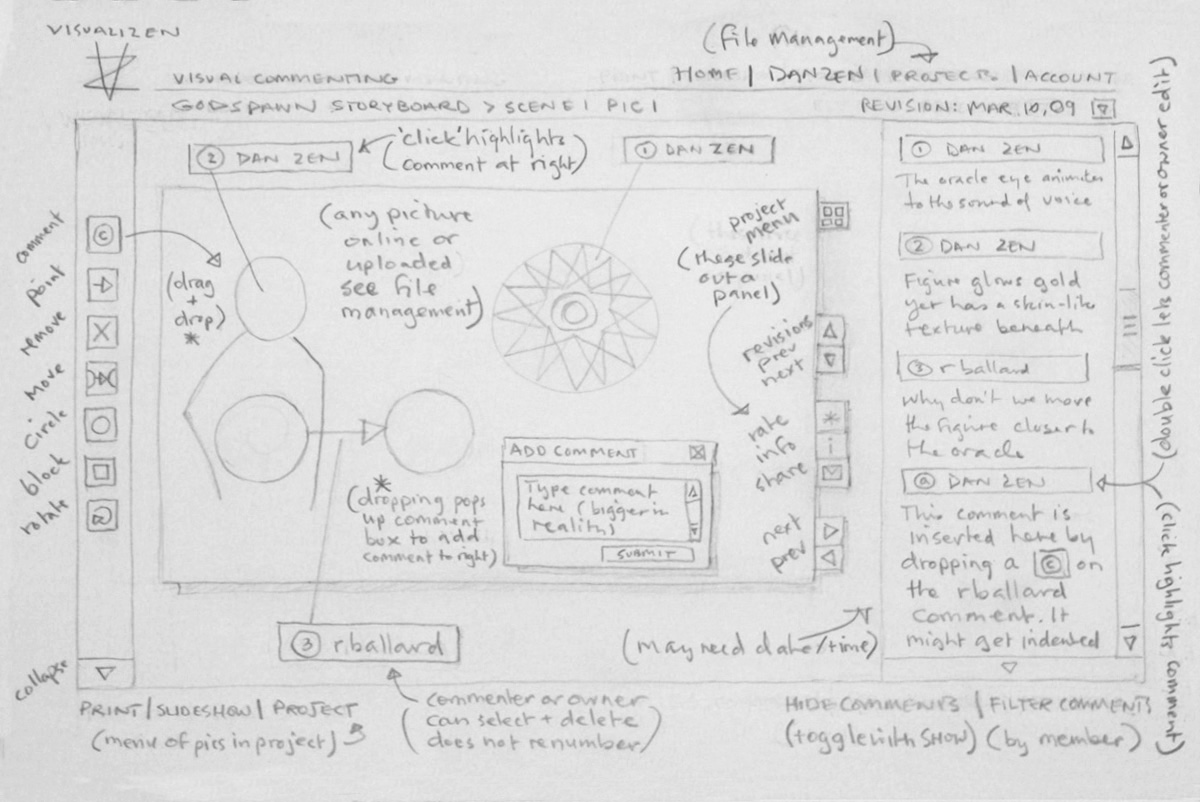 VISUALIZEN
(File Management)
VISUAL COMMENTING
HOME | DANZEN | PROJECTS | ACCOUNT
GODSPAWN STORYBOARD > SCENE 1 PIC 1
REVISION: MAR. 10, 09
② DAN ZEN
('click' highlights
comment at right)
① DAN ZEN
comment
©
point
remove
move
circle
block
rotate
collapse
(drag
+
drop)
*
(any picture
online or
uploaded
see file
management)
project
menu
(these slide
out a
panel)
revisions
prev
next
rate
*
info
i
share
next
prev
*
(dropping pops
up comment
box to add
comment to right)
ADD COMMENT
Type comment
here (bigger in
reality)
SUBMIT
③ rballard
(commenter or owner
can select + delete
does not renumber)
① DAN ZEN
The oracle eye animates
to the sound of voice
② DAN ZEN
Figure glows gold
yet has a skin-like
texture beneath
③ rballard
Why don't we move
the figure closer to
the oracle
ⓐ DAN ZEN
This comment is
inserted here by
dropping a © on
the rballard
comment. It
might get indented
(may need date/time)
(double click lets commenter or owner edit)
(click highlights comment)
PRINT | SLIDESHOW | PROJECT
(menu of pics in project)
HIDE COMMENTS | FILTER COMMENTS
(toggle with SHOW) (by member)